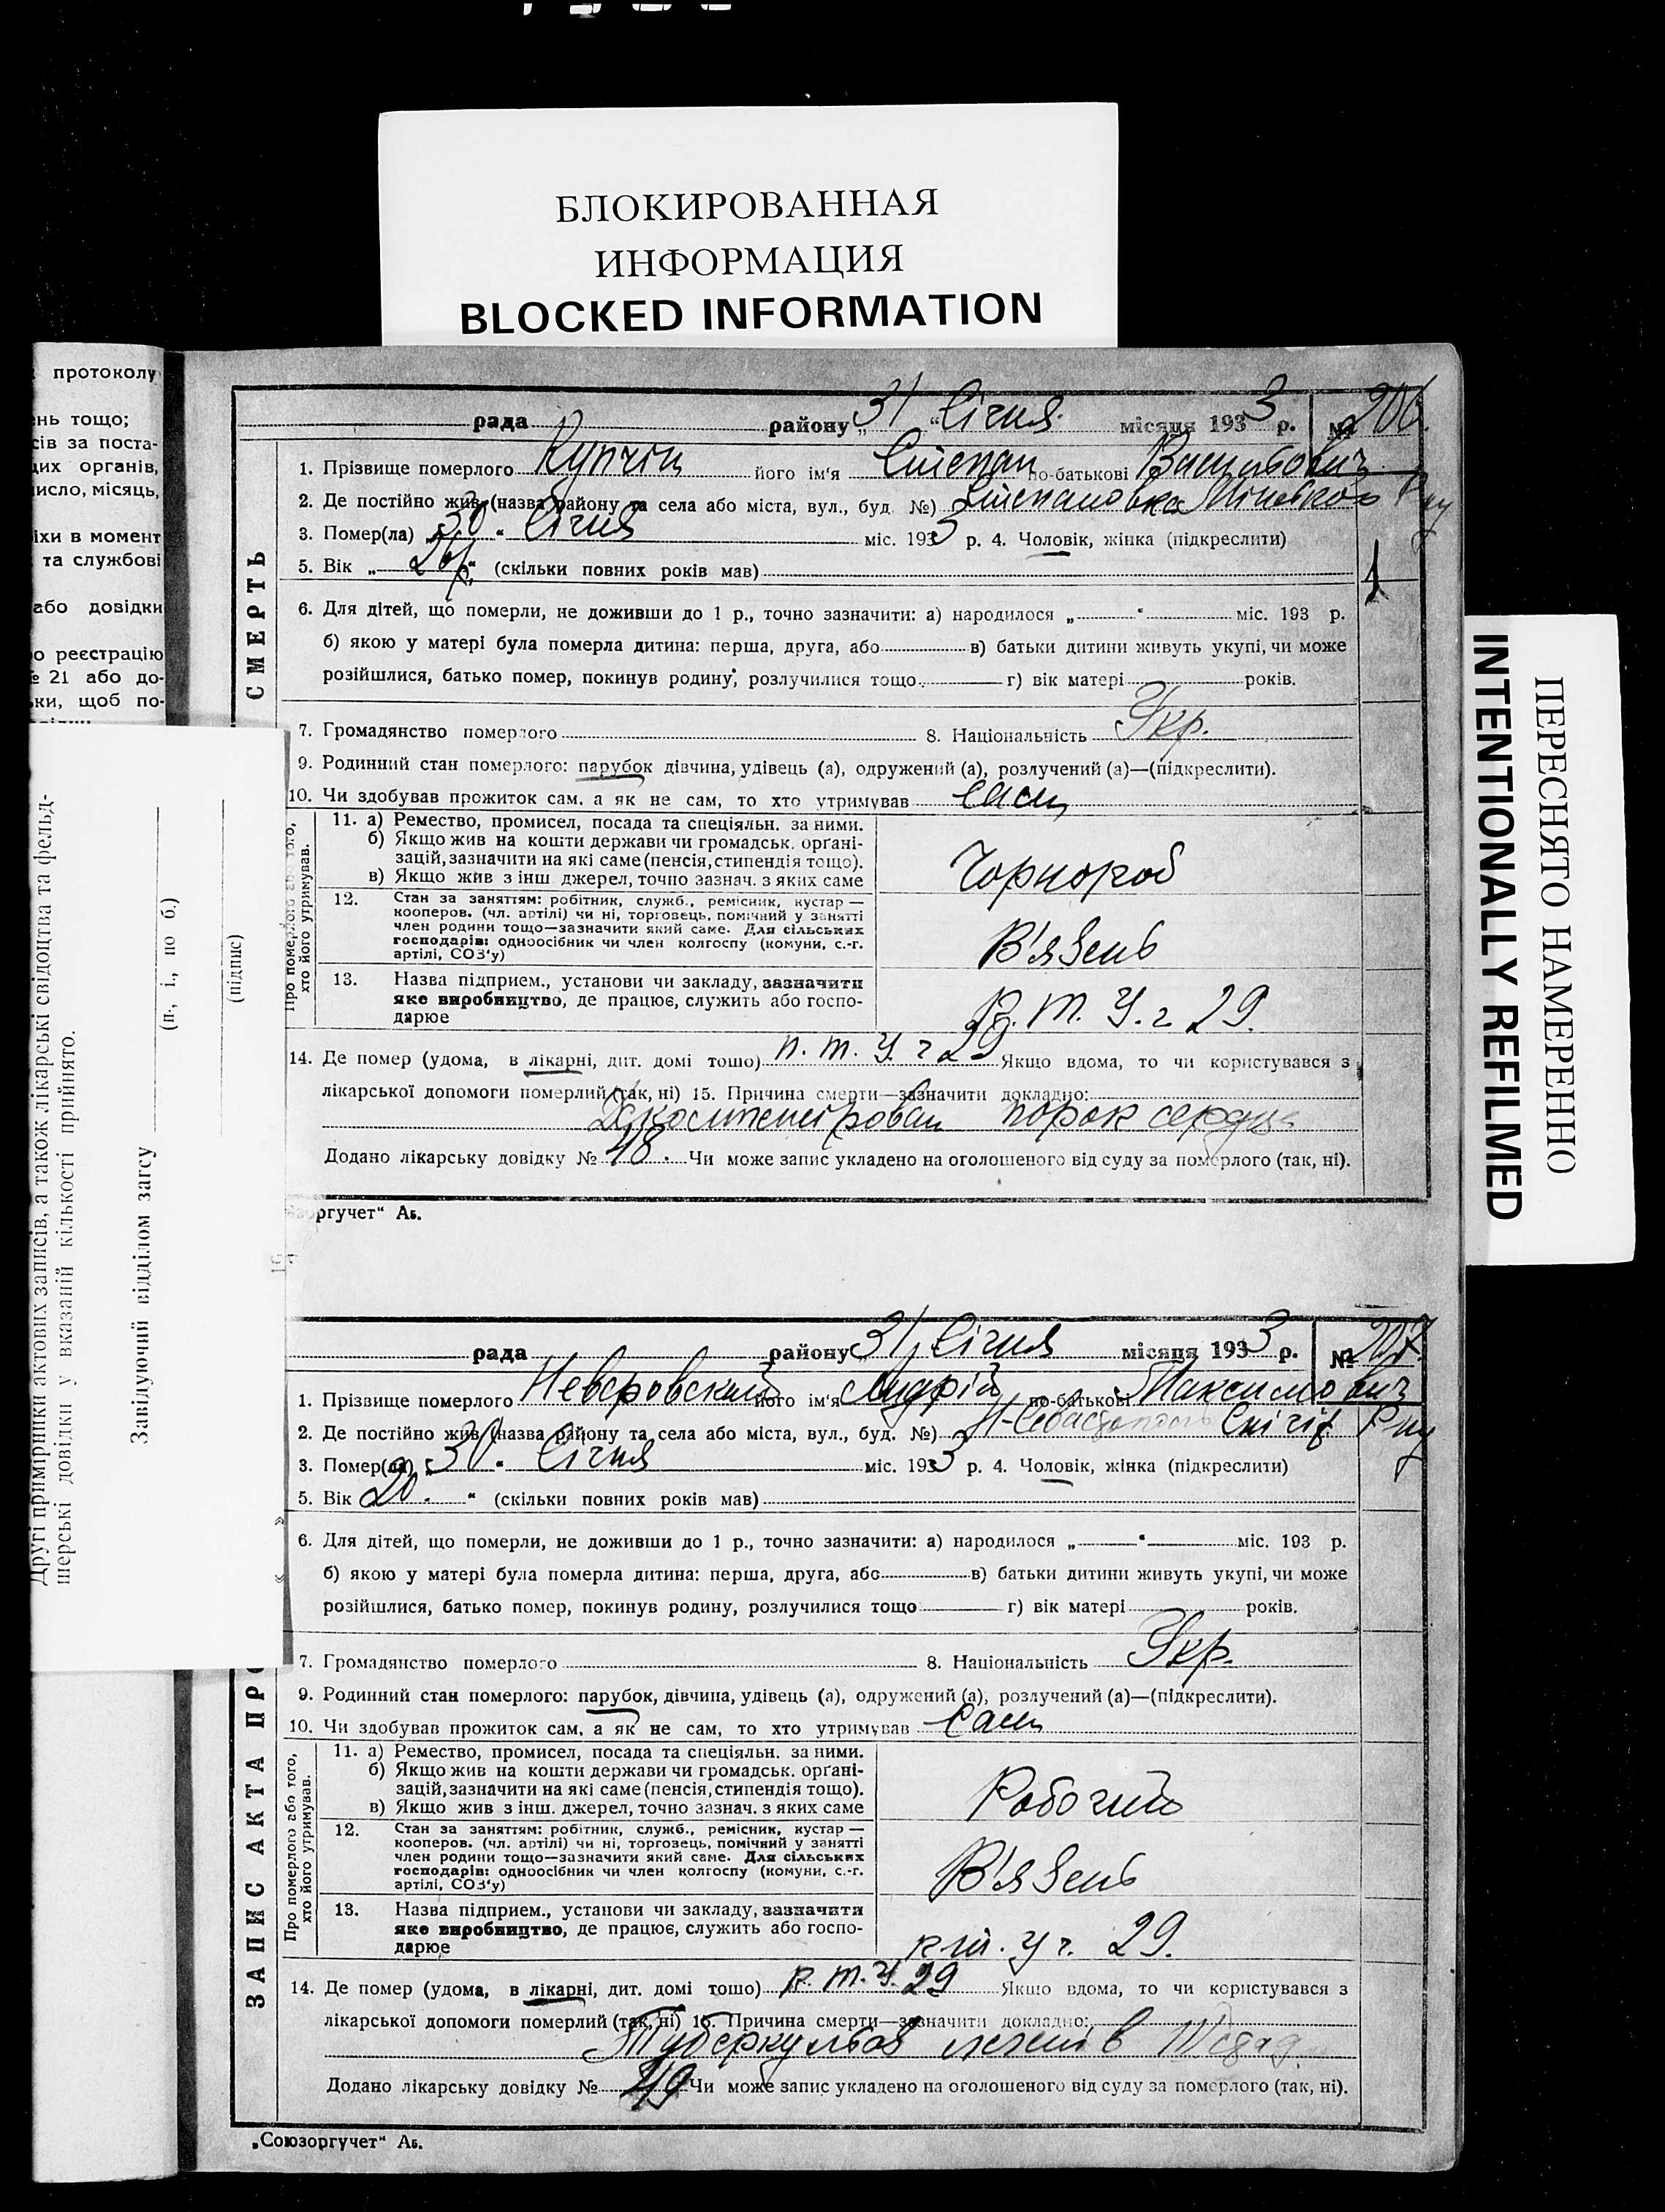 БЛОКИРОВАННАЯ
ИНФОРМАЦИЯ
BLOCKED INFORMATION
ПЕРЕСНЯТО НАМЕРЕННО
INTENTIONALLY REFILMED
протоколу
ень тощо;
сів за поста-
их органів,
исло, місяць,
іхи в момент
та службові
або довідки
о реєстрацію
№ 21 або до-
ки, щоб по-
Другі примірники актових записів, а також лікарські свідоцтва та фельд-
шерські довідки у вказаній кількості прийнято.
Завідуючий відділом загсу
(п., і., по б.)
(підпис)
СМЕРТЬ
рада району „31 “ Січня місяця 1933 р. № 206.
1. Прізвище померлого Купчін його ім'я Степан по-батькові
2. Де постійно жив (назва району та села або міста, вул., буд. №) Степановка
3. Помер(ла) „30 “ Січня міс. 1933 р. 4. Чоловік, жінка (підкреслити)
5. Вік „ “ (скільки повних років мав)
6. Для дітей, що померли, не доживши до 1 р., точно зазначити: а) народилося „ “ міс. 193 р.
б) якою у матері була померла дитина: перша, друга, або в) батьки дитини живуть укупі, чи може
розійшлися, батько помер, покинув родину, розлучилися тощо г) вік матері років.
7. Громадянство померлого 8. Національність Укр.
9. Родинний стан померлого: парубок дівчина, удівець (а), одружений (а), розлучений (а)—(підкреслити).
10. Чи здобував прожиток сам, а як не сам, то хто утримував Сам
Про померлого або того,
хто його утримував.
11. а) Ремество, промисел, посада та спеціяльн. за ними.
б) Якщо жив на кошти держави чи громадськ. орґані-
зацій, зазначити на які саме (пенсія, стипендія тощо).
в) Якщо жив з інш джерел, точно зазнач. з яких саме
Чорнороб
12. Стан за заняттям: робітник, служб., ремісник, кустар —
кооперов. (чл. артілі) чи ні, торговець, помічний у занятті
член родини тощо—зазначити який саме. Для сільських
господарів: одноосібник чи член колгоспу (комуни, с.-г.
артілі, СОЗ'у)
В'язень
13. Назва підприєм., установи чи закладу, зазначити
яке виробництво, де працює, служить або госпо-
дарює
р. т. У. ч 29.
14. Де помер (удома, в лікарні, дит. домі тошо) п. т. У. ч 29 Якщо вдома, то чи користувався з
лікарської допомоги померлий (так, ні) 15. Причина смерти—зазначити докладно:
порок сердца
Додано лікарську довідку № 48. Чи може запис укладено на оголошеного від суду за померлого (так, ні).
оргучет“ Аб.
ЗАПИС АКТА ПРО
рада району „31 Січня місяця 1933 р. № 207.
1. Прізвище померлого Неверовский його ім'я Андрій по-батькові Максимович
2. Де постійно жив (назва району та села або міста, вул., буд. №)
3. Помер(ла) „30 “ Січня міс. 1933 р. 4. Чоловік, жінка (підкреслити)
5. Вік 20. “ (скільки повних років мав)
6. Для дітей, що померли, не доживши до 1 р., точно зазначити: а) народилося „ “ міс. 193 р.
б) якою у матері була померла дитина: перша, друга, або в) батьки дитини живуть укупі, чи може
розійшлися, батько помер, покинув родину, розлучилися тощо г) вік матері років.
7. Громадянство померлого 8. Національність Укр.
9. Родинний стан померлого: парубок, дівчина, удівець (а), одружений (а), розлучений (а)—(підкреслити).
10. Чи здобував прожиток сам, а як не сам, то хто утримував Сам
Про померлого або того,
хто його утримував.
11. а) Ремество, промисел, посада та спеціяльн. за ними.
б) Якщо жив на кошти держави чи громадськ. орґані-
зацій, зазначити на які саме (пенсія, стипендія тощо).
в) Якщо жив з інш. джерел, точно зазнач. з яких саме
Робочий
12. Стан за заняттям: робітник, служб., ремісник, кустар —
кооперов. (чл. артілі) чи ні, торговець, помічний у занятті
член родини тощо—зазначити який саме. Для сільських
господарів: одноосібник чи член колгоспу (комуни, с.-г.
артілі, СОЗ'у)
В'язень
13. Назва підприєм., установи чи закладу, зазначити
яке виробництво, де працює, служить або госпо-
дарює
р.т. У ч. 29.
14. Де помер (удома, в лікарні, дит. домі тошо) р. т. У. 29 Якшо вдома, то чи користувався з
лікарської допомоги померлий (так, ні) 15. Причина смерти—зазначити докладно:
Туберкульоз легенів
Додано лікарську довідку № 49 Чи може запис укладено на оголошеного від суду за померлого (так, ні).
„Союзоргучет“ Аб.